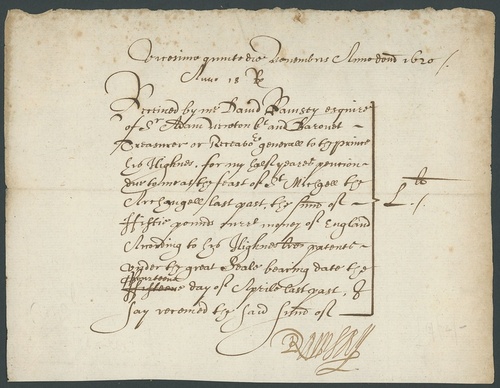 Vicesimo quinto die Novembris Anno dom̄ 1620
Anno 18 Rx
Receiued by me Dauid Ramsey esquire
of Sr Adam Newton kt and Baronet
Treasurer or Receaŏr generall to the prince
his Highnes, for my half yeares pencion
due to me at the feast of St Michaell the
Archangell last past, the some of
ffiftie pounds currt money of England
According to his Highnes lres patents
vnder the great Seale bearing date the
fourteenth
ffifteene day of Aprill last past, I
say receiued the said some of
li
L
DRamsay